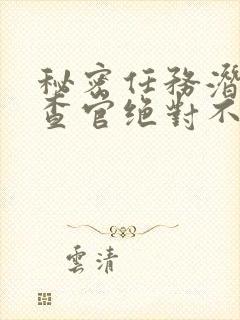 秘密任務潛
查官绝對不
雲清